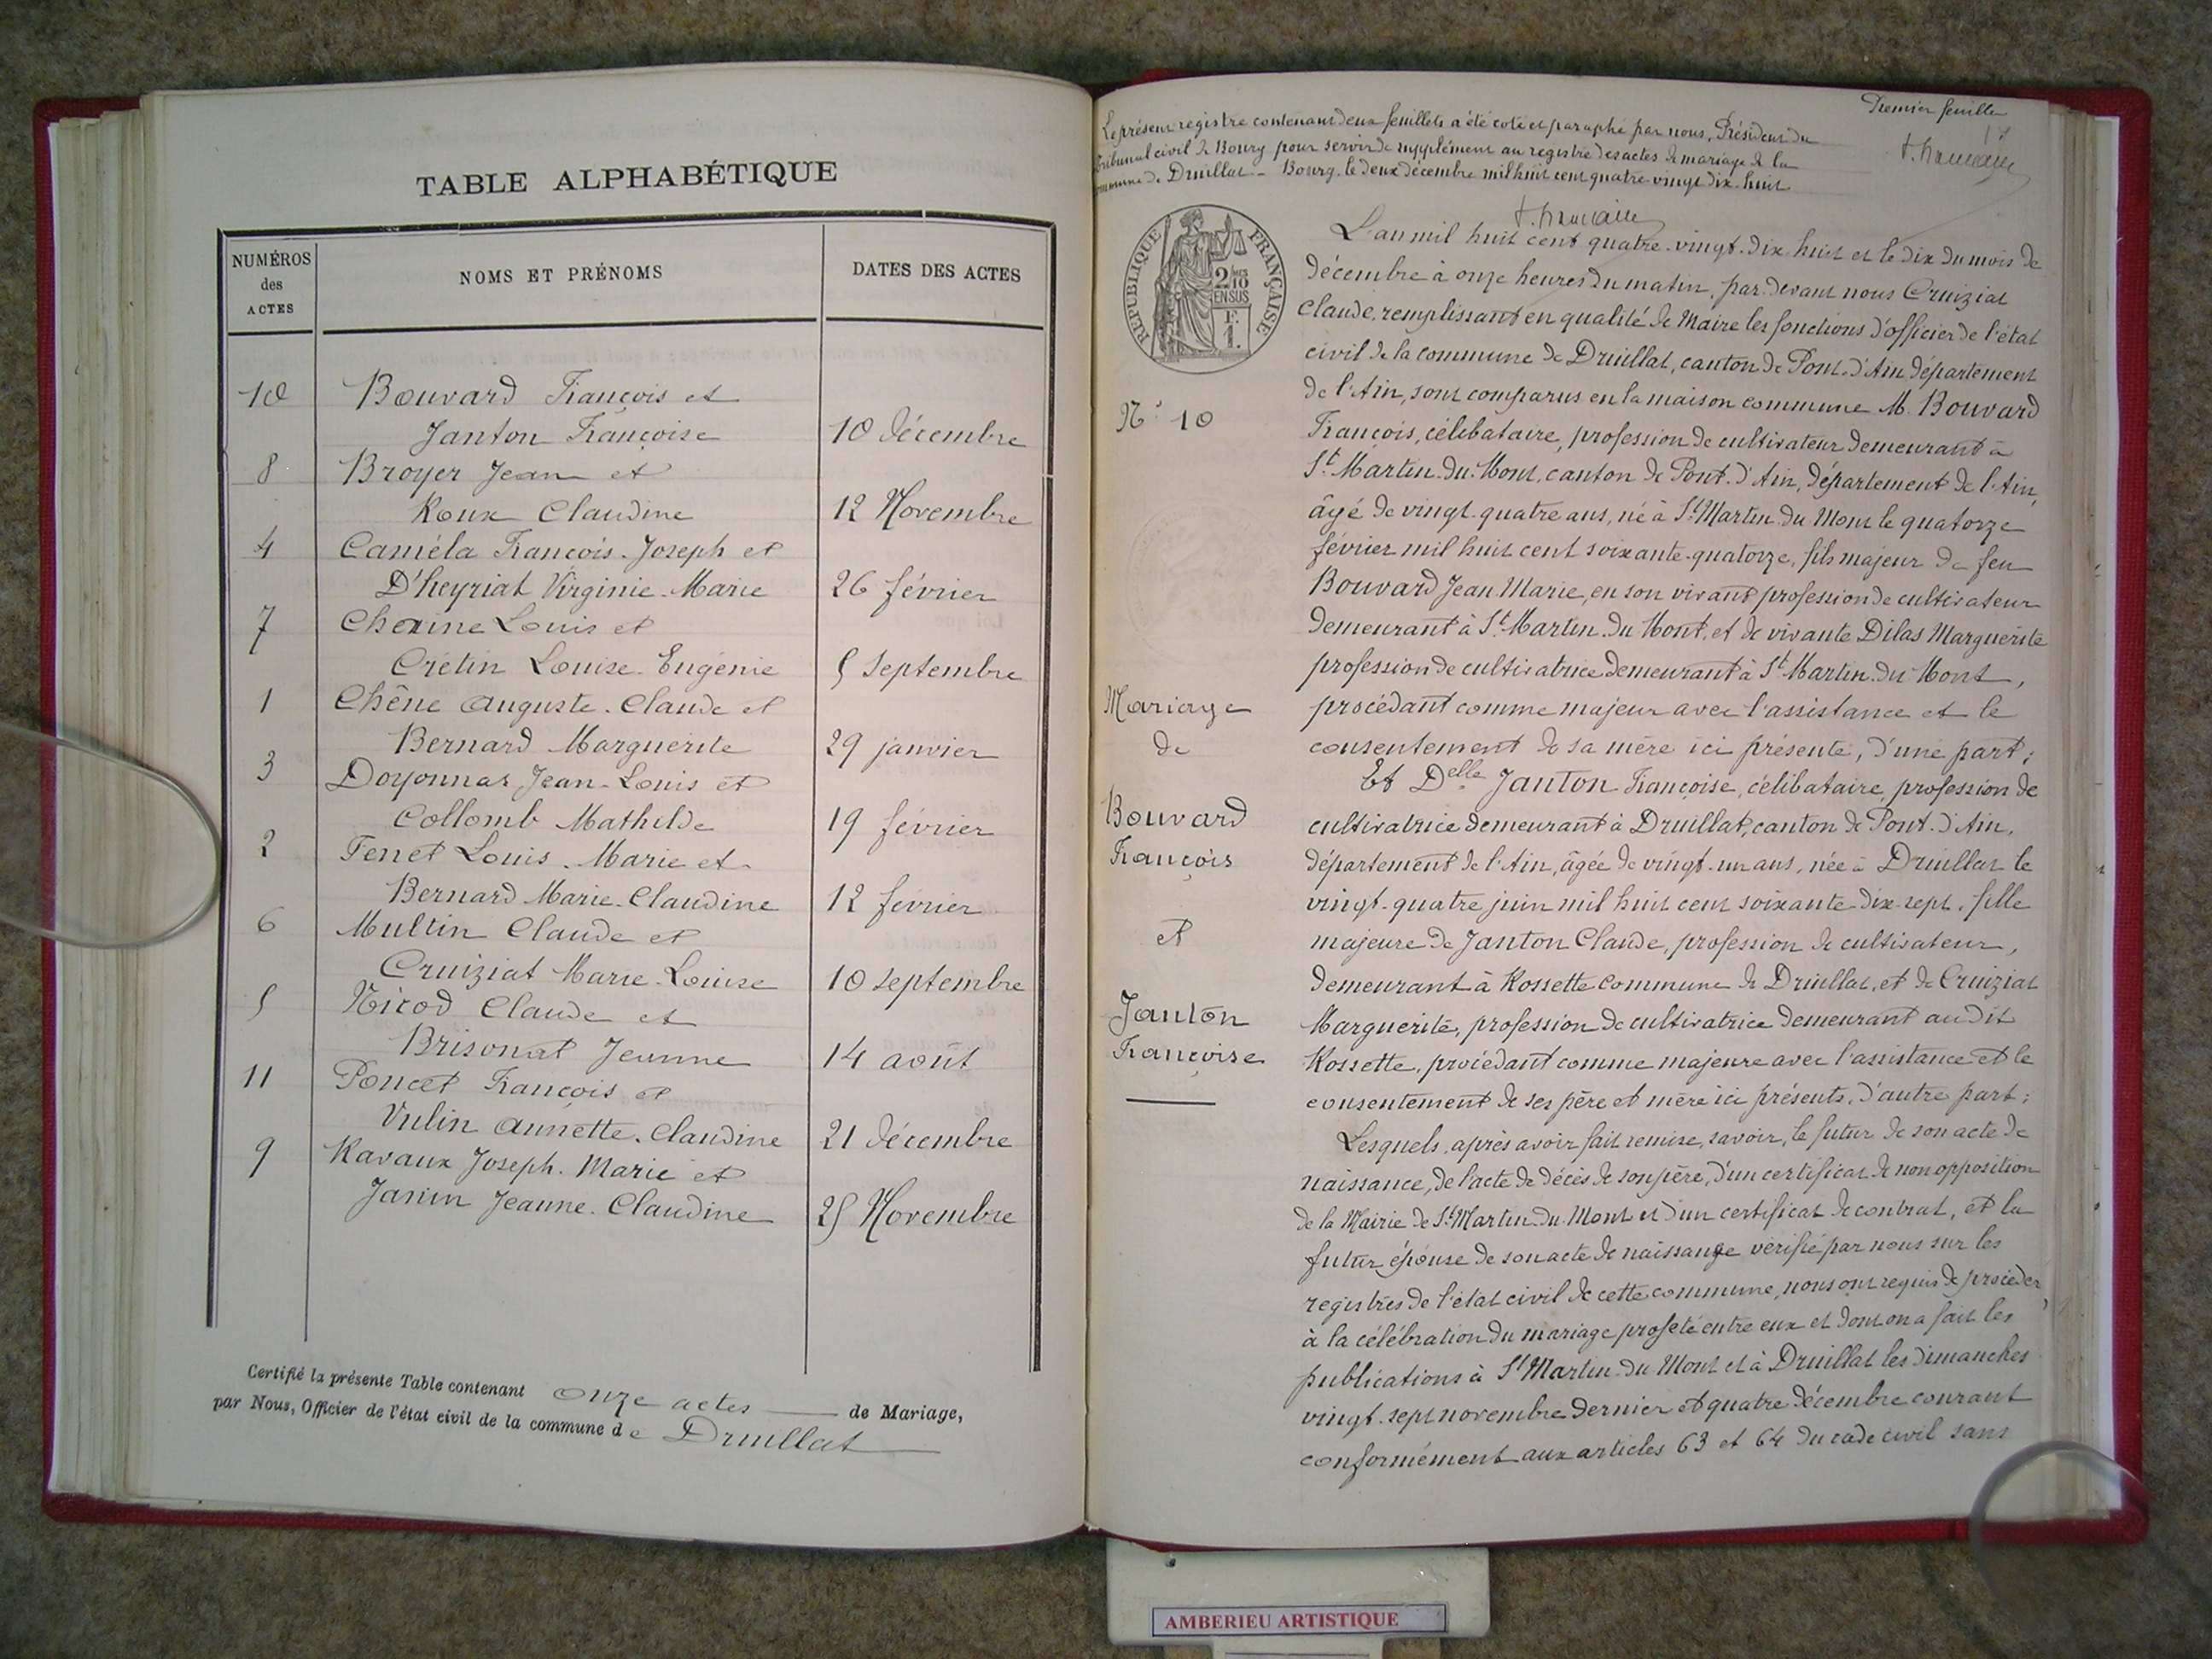 TABLE ALPHABÉTIQUE
NUMÉROS des ACTES
NOMS ET PRÉNOMS
DATES DES ACTES
10 Bouvard François et
Janton Françoise 10 décembre
8 Broyer Jean et
Roux Claudine 12 Novembre
4 Caméla François-Joseph et
D'heyriat Virginie-Marie 26 février
7 Cherine Louis et
Crétin Louise-Eugénie 5 septembre
1 Chêne Auguste-Claude et
Bernard Marguerite 29 janvier
3 Doyonnas Jean-Louis et
Collomb Mathilde 19 février
2 Fenet Louis-Marie et
Bernard Marie-Claudine 12 février
6 Multin Claude et
Cruiziat Marie-Louise 10 septembre
5 Nicod Claude et
Brisonat Jeanne 14 août
11 Poncet François et
Vulin Annette-Claudine 21 décembre
9 Ravaux Joseph-Marie et
Janin Jeanne-Claudine 25 Novembre
Certifié la présente Table contenant onze actes de Mariage,
par Nous, Officier de l'état civil de la commune de Druillat
Premier feuillet
Le présent registre contenant deux feuillets a été coté et paraphé par nous, Président du
Tribunal civil de Bourg pour servir de supplément au registre des actes de mariage de la
commune de Druillat - Bourg, le deux décembre mil huit cent quatre-vingt dix-huit
RÉPUBLIQUE FRANÇAISE
2/10
EN SUS
F.
1.
L'an mil huit cent quatre-vingt-dix huit et le dix du mois de
décembre à onze heures du matin, par-devant nous Cruiziat
Claude, remplissant en qualité de Maire les fonctions d'officier de l'état
civil de la commune de Druillat, canton de Pont-d'Ain département
de l'Ain, sont comparus en la maison commune M. Bouvard
N° 10
François, célibataire, profession de cultivateur demeurant à
St Martin-du-Mont, canton de Pont-d'Ain, département de l'Ain,
âgé de vingt-quatre ans, né à St Martin du Mont le quatorze
février mil huit cent soixante-quatorze, fils majeur de feu
Bouvard Jean Marie, en son vivant profession de cultivateur
demeurant à St Martin du Mont, et de vivante Dilas Marguerite
profession de cultivatrice demeurant à St Martin-du-Mont,
Mariage
de
Bouvard
François
et
Janton
Françoise
procédant comme majeur avec l'assistance et le
consentement de sa mère ici présente, d'une part;
Et Delle Janton Françoise, célibataire, profession de
cultivatrice demeurant à Druillat, canton de Pont-d'Ain,
département de l'Ain, âgée de vingt-un ans, née à Druillat le
vingt-quatre juin mil huit cent soixante-dix-sept, fille
majeure de Janton Claude, profession de cultivateur,
demeurant à Rossette commune de Druillat, et de Cruiziat
Marguerite, profession de cultivatrice demeurant audit
Rossette, procédant comme majeure avec l'assistance et le
consentement de ses père et mère ici présents, d'autre part;
Lesquels, après avoir fait remise, savoir, le futur de son acte de
naissance, de l'acte de décès de son père, d'un certificat de non opposition
de la Mairie de St Martin-du-Mont et d'un certificat de contrat, et la
futur épouse de son acte de naissance vérifié par nous sur les
registres de l'état civil de cette commune, nous ont requis de procéder
à la célébration du mariage projeté entre eux et dont on a fait les
publications à St Martin-du-Mont et à Druillat les dimanches
vingt-sept novembre dernier et quatre décembre courant
conformément aux articles 63 et 64 du code civil sans
AMBERIEU ARTISTIQUE